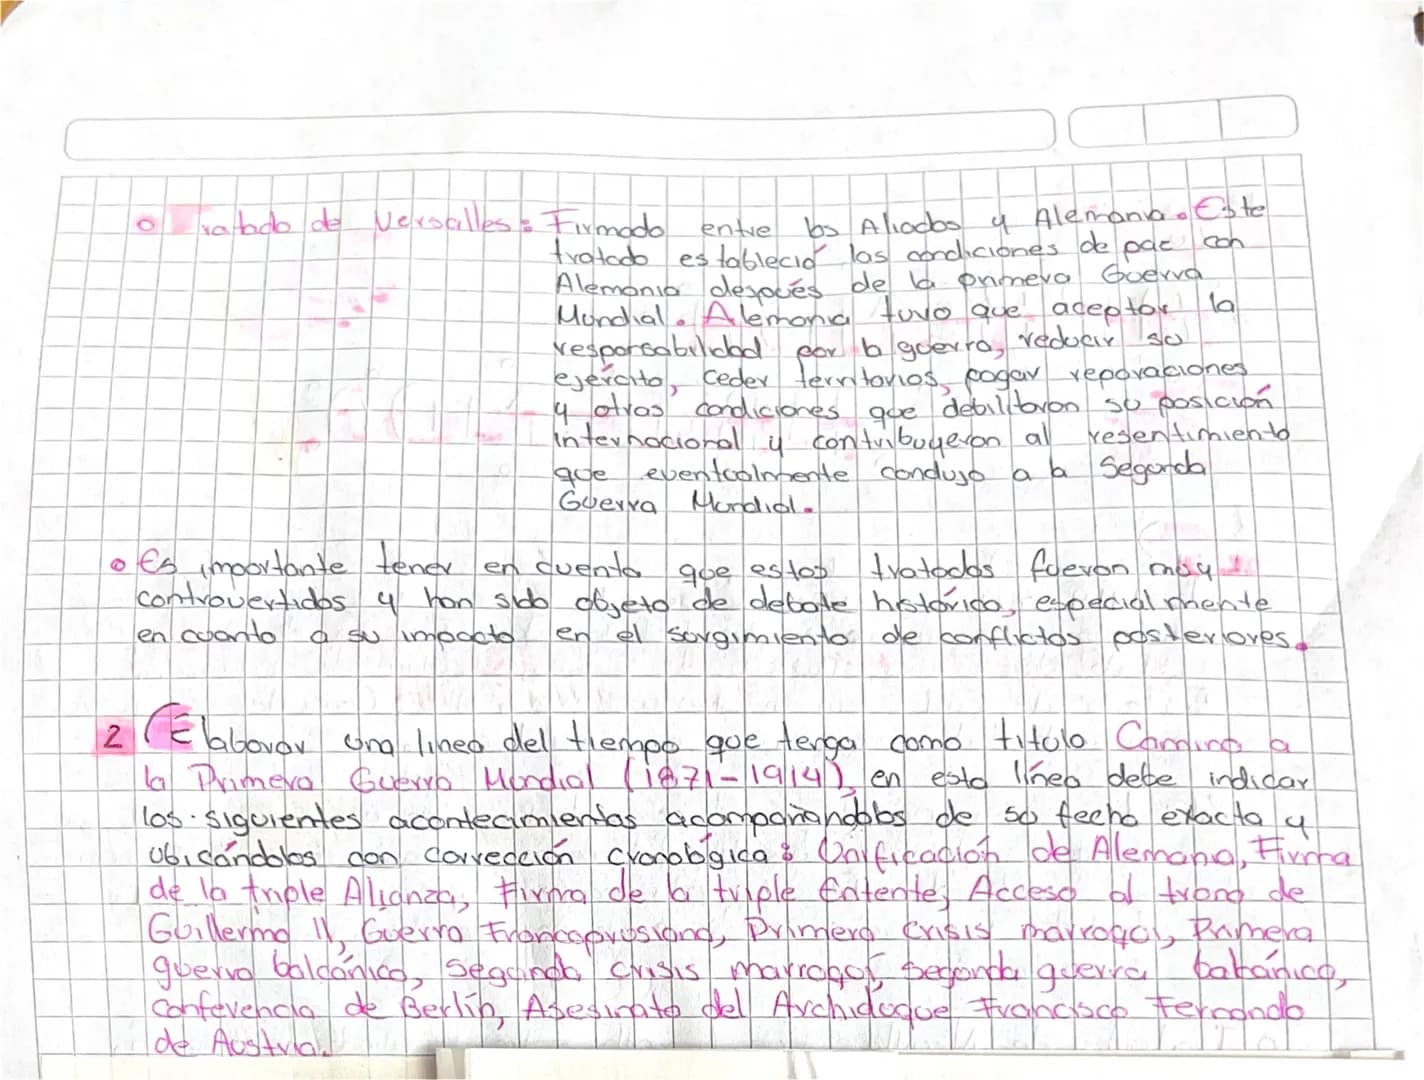 Tratado de Versalles: Firmado entre los Aliados y Alemania. Este
tratado estableció las condiciones de paz con
Alemania después de la primera Guerra
Mundial. Alemania tuvo que aceptar la
responsabilidad por la guerra, reducir su
ejército, ceder territorios, pagar reparaciones
y otras condiciones que debilitaron su posición
internacional y contribuyeron al resentimiento
que eventualmente condujo a la Segunda
Guerra Mundial.
Es importante tener en cuenta que estos tratados fueron muy
controvertidos y han sido objeto de debate histórico, especialmente
en cuanto a su impacto en el surgimiento de conflictos posteriores.
2 Elaborar una linea del tiempo que tenga como titulo Camino a
la Primera Guerra Mundial (1871-1914), en esta línea debe indicar
los siguientes acontecimientos acompañandolos de su fecha exacta y
ubicándolos con corrección cronológica: Unificación de Alemania, Firma
de la triple Alianza, Firma de la triple Entente, Acceso al trono de
Guillermo II, Guerra Francoprusiana, Primera crisis marroquí, Primera
guerra balcánica, Segunda crisis marroquí, Segunda guerra balcánica,
Conferencia de Berlín, Asesinato del Archiduque Francisco Fernando
de Austria.